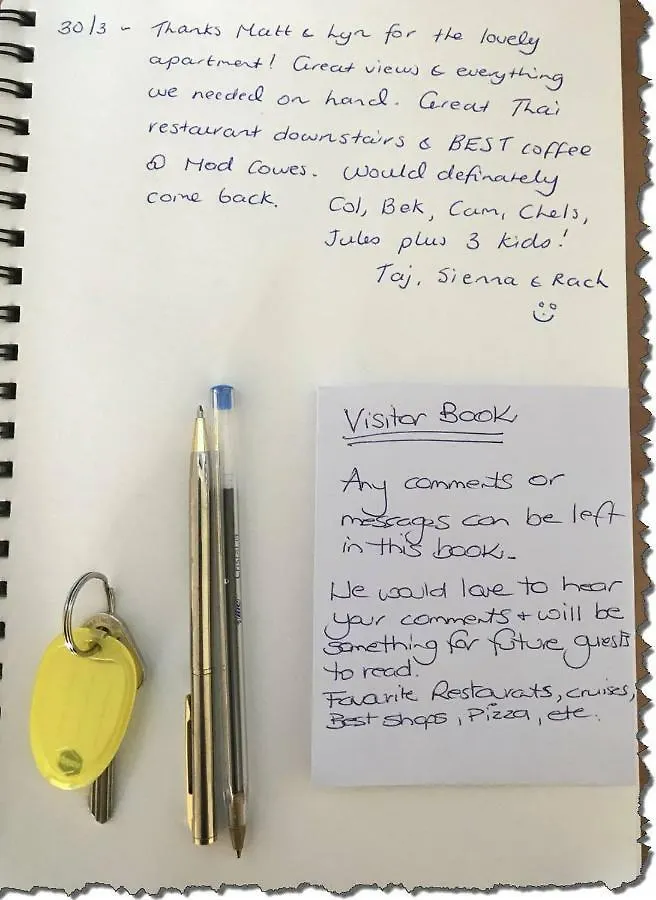 30/3 - Thanks Matt & Lyn for the lovely
apartment! Great views & everything
we needed on hand. Great Thai
restaurant downstairs & BEST coffee
@ Mad Cowes. Would definately
come back. Col, Bek, Cam, Chels,
Jules plus 3 kids!
Taj, Sienna & Rach
Visitor Book
Any comments or
messages can be left
in this book.
We would love to hear
your comments + will be
something for future guests
to read.
Favarite Restaurats, cruises,
Best shops, Pizza, etc.